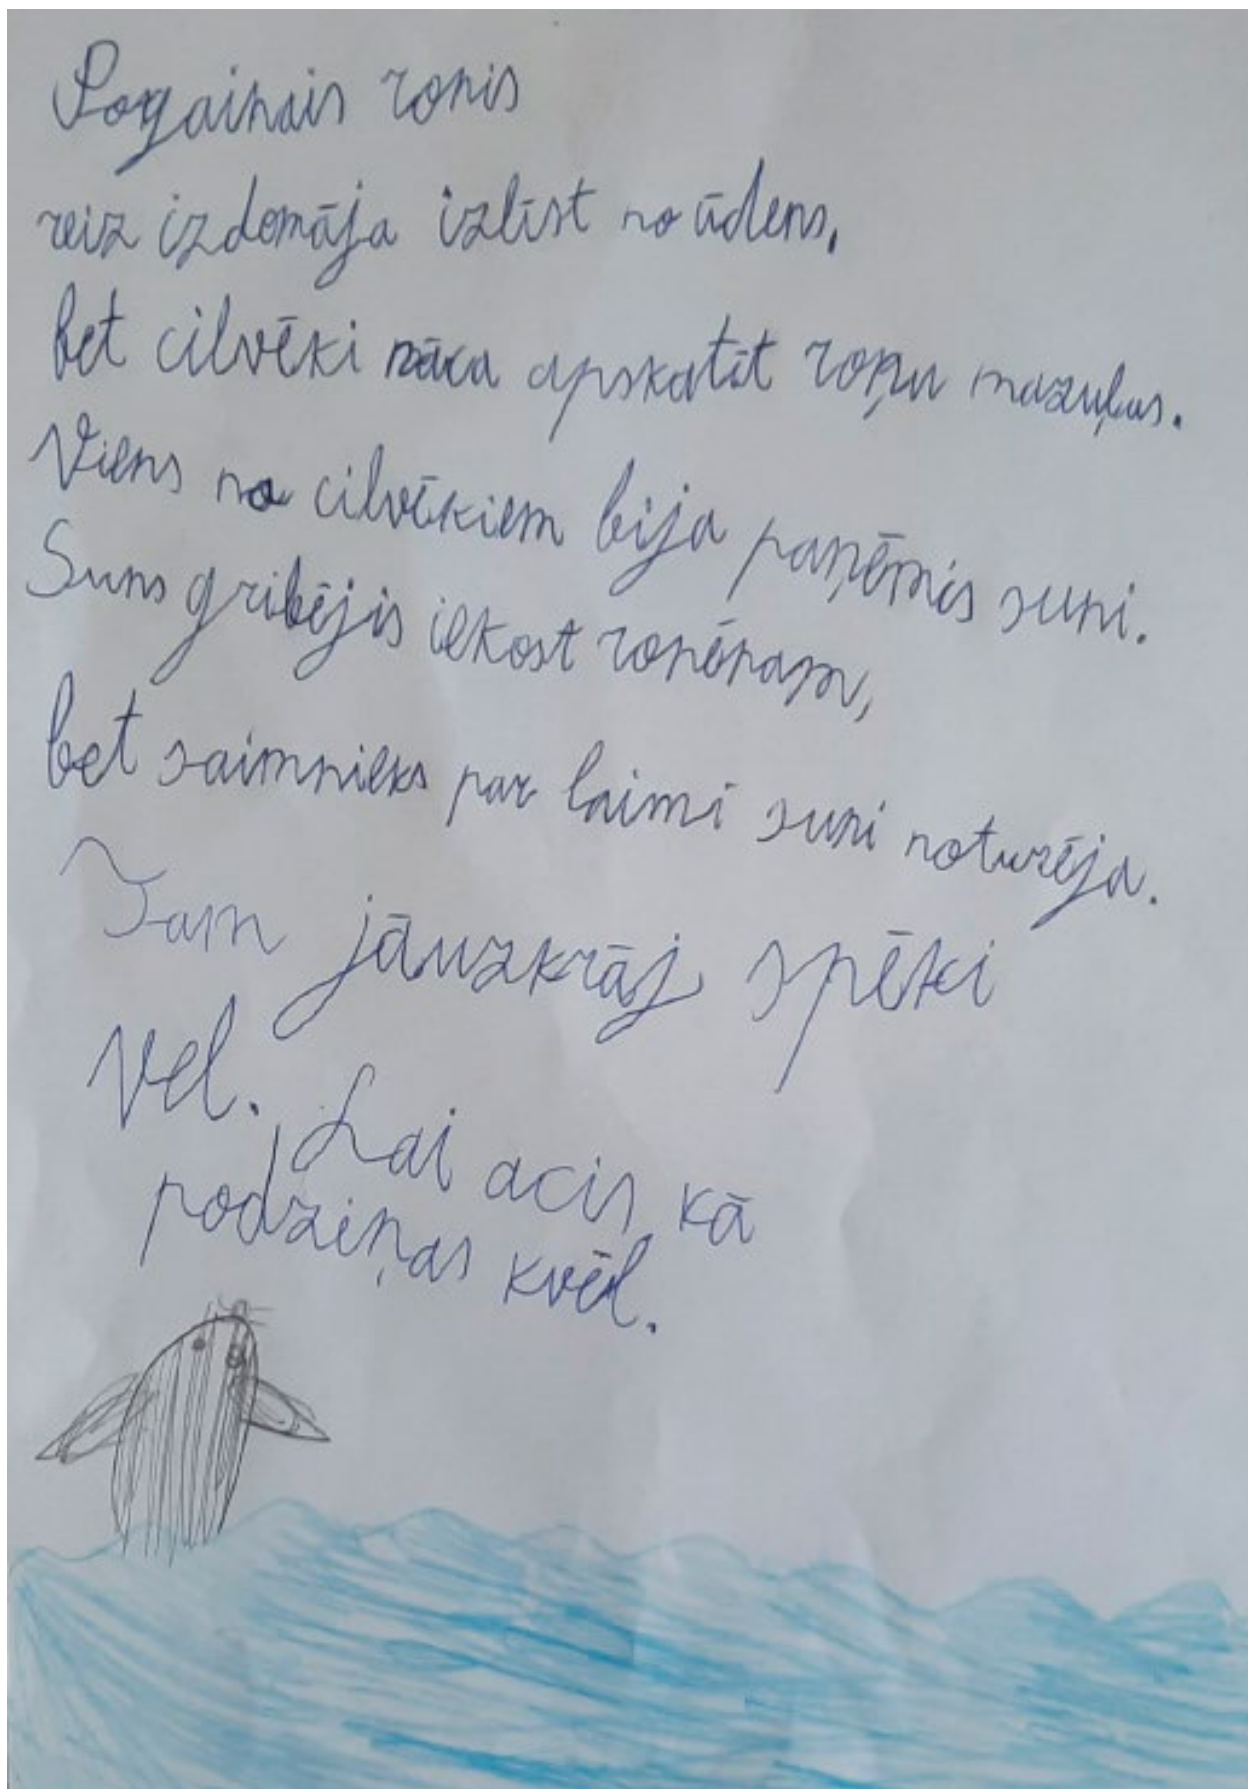 Pogainais ronis
reiz izdomāja izlīst no ūdens,
bet cilvēki nāca apskatīt roņu mazuļus.
Viens no cilvēkiem bija paņēmis suni.
Suns gribējis iekost ronēnam,
bet saimnieks par laimi suni noturēja.
Tam jāuzkrāj spēki
vēl. Lai acis kā
podziņas kvēl.